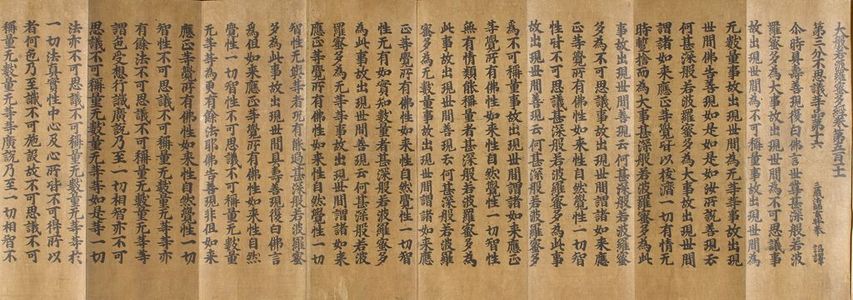 大般若波羅蜜多經卷第五百一十一
第三分不思議等品第十六 三藏法師玄奘奉 詔譯
爾時具壽善現復白佛言世尊甚深般若波
羅蜜多為大事故出現世間為不可思議事
故出現世間為不可稱量事故出現世間為
无數量事故出現世間為无等等事故出現
世間佛告善現如是如是如汝所說善現云
何甚深般若波羅蜜多為大事故出現世間
謂諸如來應正等覺皆以拔濟一切有情无
時暫捨而為大事甚深般若波羅蜜多為此
事故出現世間善現云何甚深般若波羅蜜
多為不可思議事故出現世間謂諸如來應
正等覺所有佛性如來性自然覺性一切智
性皆不可思議甚深般若波羅蜜多為此事
故出現世間善現云何甚深般若波羅蜜多
為不可稱量事故出現世間謂諸如來應正
等覺所有佛性如來性自然覺性一切智性
無有情類能稱量者甚深般若波羅蜜多為
此事故出現世間善現云何甚深般若波羅
蜜多為无數量事故出現世間謂諸如來應
正等覺所有佛性如來性自然覺性一切智
性无有如實知數量者甚深般若波羅蜜多
為此事故出現世間善現云何甚深般若波
羅蜜多為无等等事故出現世間謂諸如來
應正等覺所有佛性如來性自然覺性一切
智性无與等者況有能過甚深般若波羅蜜
多為此事故出現世間具壽善現復白佛言
為但如來應正等覺所有佛性如來性自然
覺性一切智性不可思議不可稱量无數量
无等等為更有餘法耶佛告善現非但如來
應正等覺所有佛性如來性自然覺性一切
智性不可思議不可稱量无數量无等等亦
有餘法不可思議不可稱量无數量无等等
謂色受想行識廣說乃至一切相智亦不可
思議不可稱量无數量无等等如是等一
法亦不可思議不可稱量无數量无等等於
一切法真實性中心及心所皆不可得所以
者何色乃至識不可施設故不可思議不可
稱量无數量无等等廣說乃至一切相智不